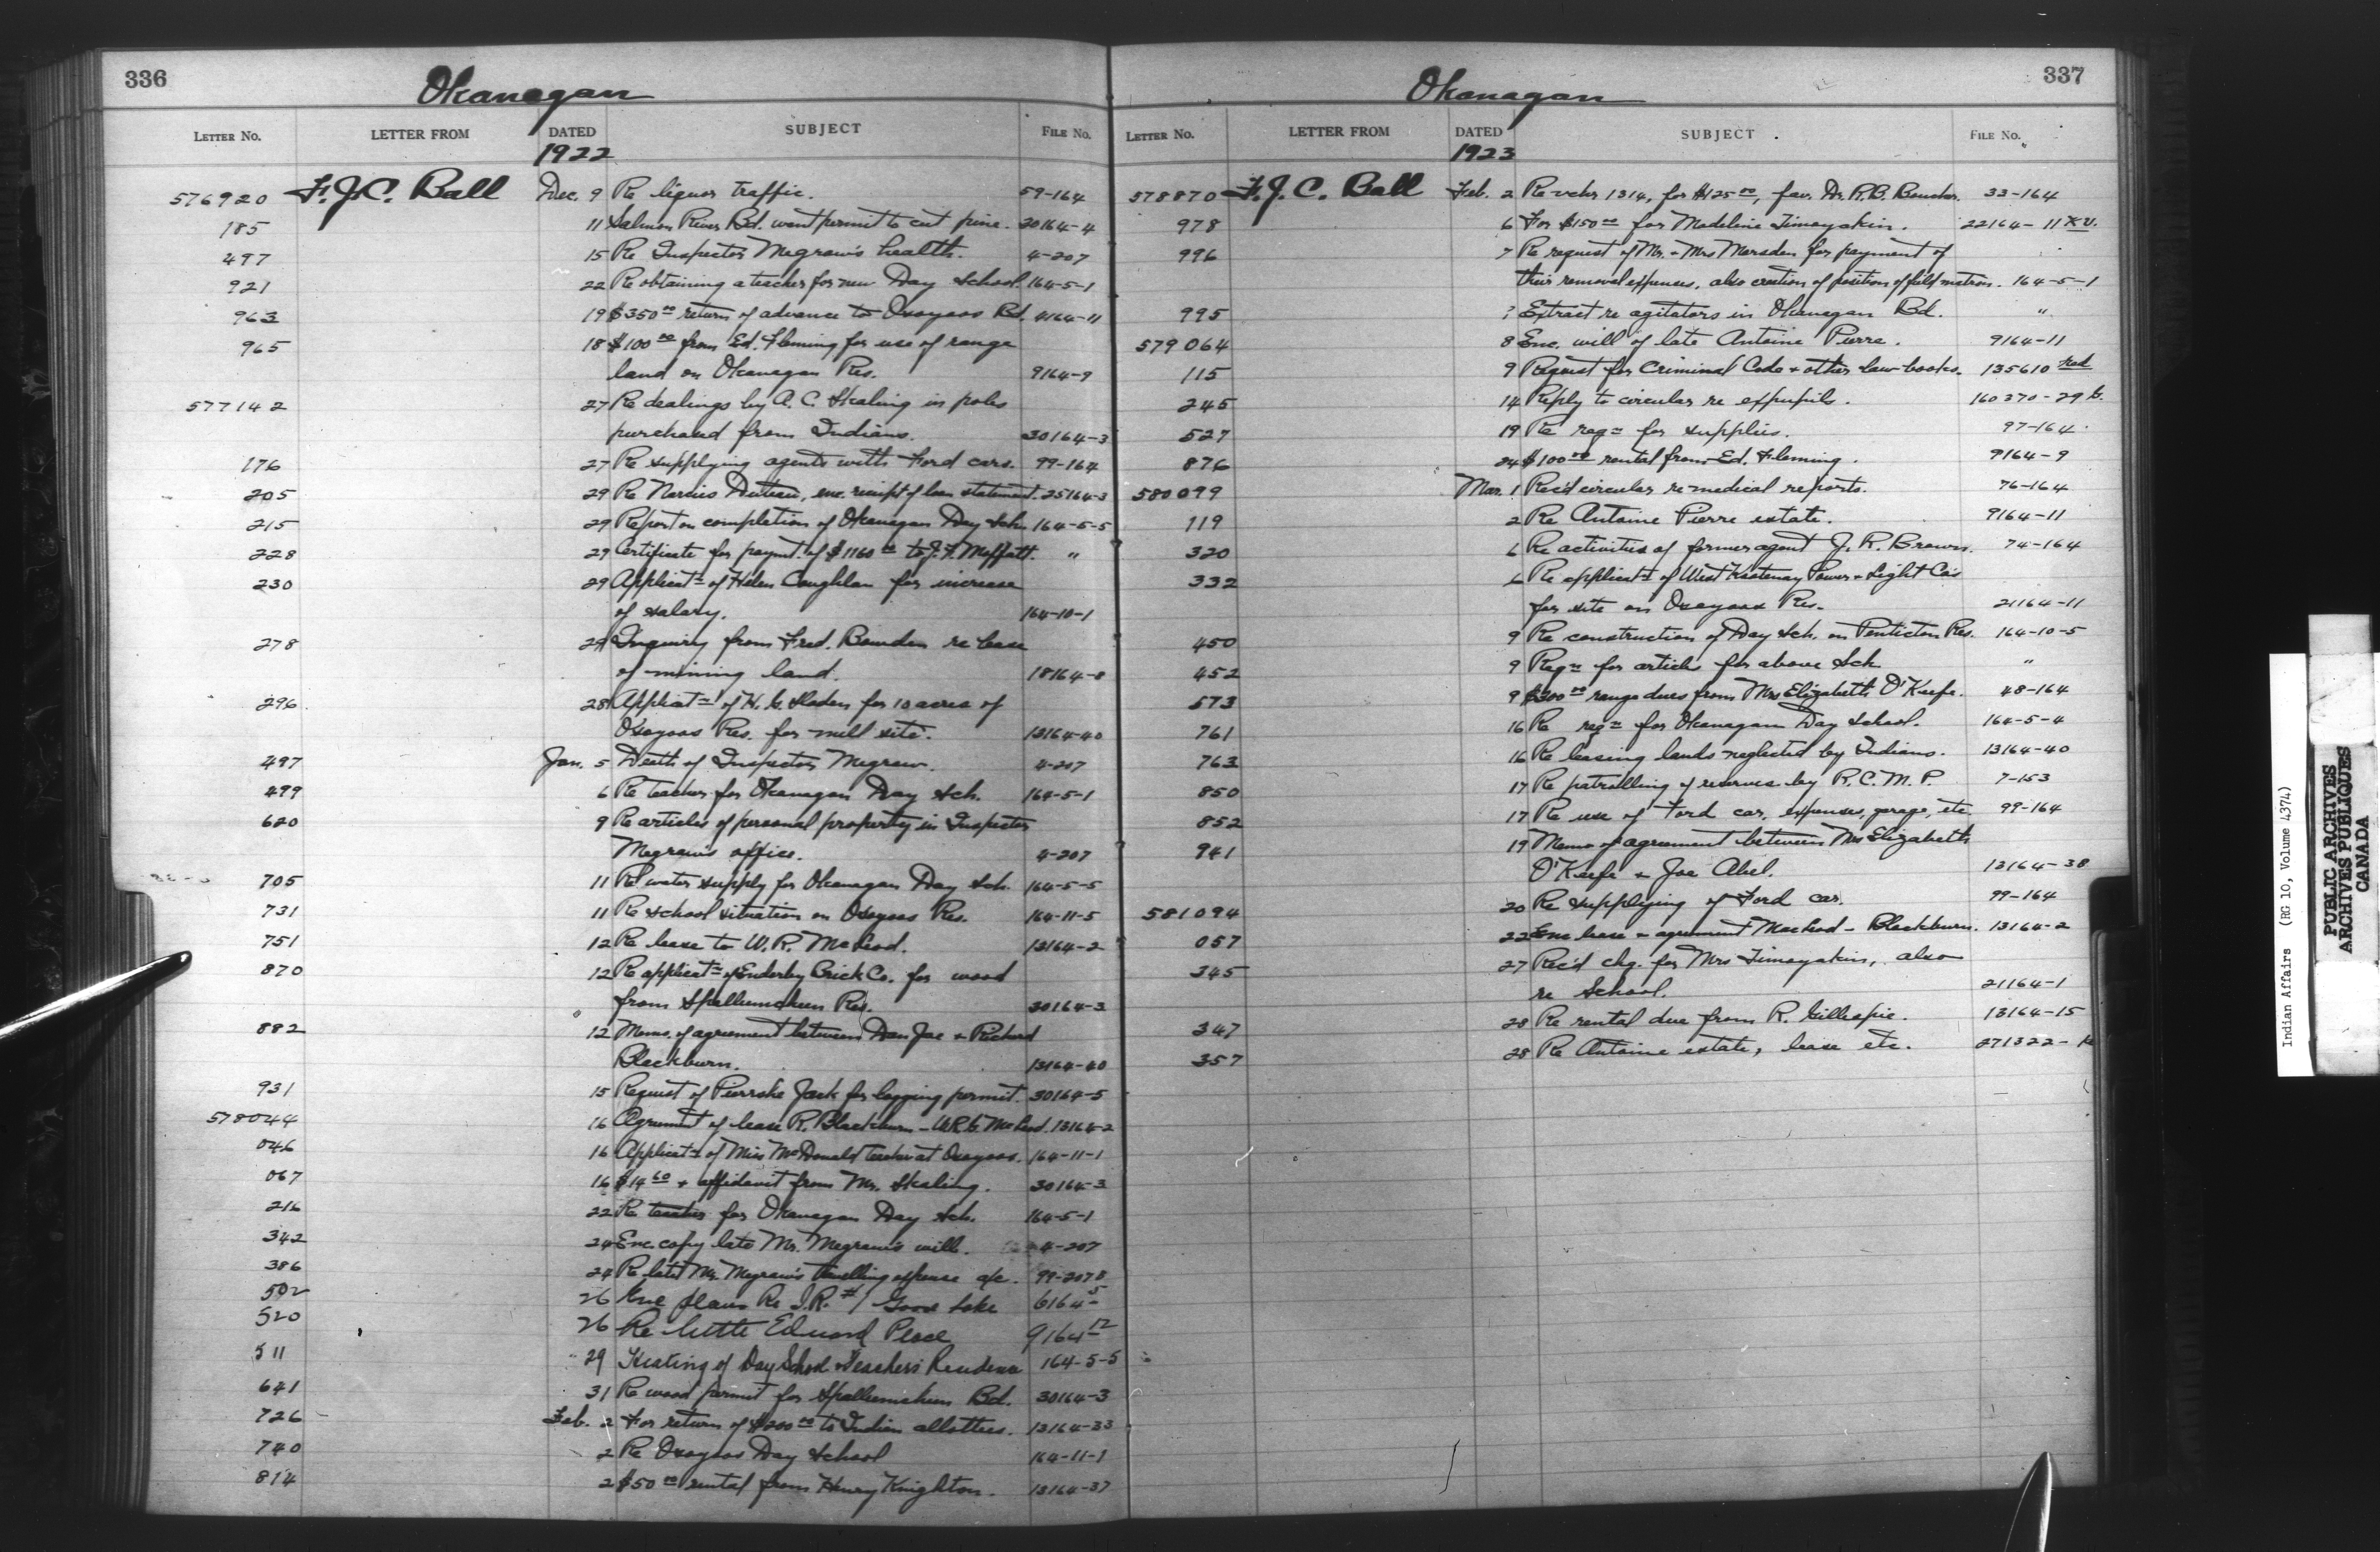 336
Okanagan
LETTER NO. LETTER FROM DATED SUBJECT FILE NO.
1922
576920 F. J. C. Ball Dec. 9 Re liquor traffic. 59-164
185 11 Salmon River Bd. want permit to cut pine. 30164-4
497 15 Re Inspector Megraw's health. 4-207
921 22 Re obtaining a teacher for new Day School. 164-5-1
963 19 $350 00 return of advance to Osoyoos Bd. 4164-11
965 18 $100 00 from Ed. Fleming for use of range
land on Okanagan Res. 9164-9
577142 27 Re dealings by A. C. Skaling in poles
purchased from Indians. 30164-3
176 27 Re supplying agents with Ford cars. 99-164
205 29 Re Narcies enc. receipt of loan statement. 25164-3
215 29 Report on completion of Okanagan Day Sch. 164-5-5
228 29 Certificate for paymt. of $1160 00 to J. F. Moffatt. "
230 29 Applicatn of Helen Coughlan for increase
of salary. 164-10-1
278 29 Inquiry from Fred. Bowden re lease
of mining land. 18164-8
296 28 Applicatn of H. G. Sladen for 10 acres of
Osoyoos Res. for mill site. 13164-40
497 Jan. 5 Death of Inspector Megraw. 4-207
499 6 Re teacher for Okanagan Day Sch. 164-5-1
620 9 Re articles of personal property in Inspector
Megraw's office. 4-207
705 11 Re water supply for Okanagan Day Sch. 164-5-5
731 11 Re school situation on Osoyoos Res. 164-11-5
751 12 Re lease to W. R. McLeod. 13164-2
870 12 Re applicatn of Enderby Brick Co. for wood
from Spallumcheen Res. 30164-3
882 12 Memo. of agreement between Dan Joe & Richard
Blackburn. 13164-40
931 15 Request of Pierrishe Jack for logging permit. 30164-5
578044 16 Agreemnt of lease R. Blackburn - W.R.G. McLeod. 13164-2
046 16 Applicatn of Miss McDonald teacher at Osoyoos. 164-11-1
067 16 $14 60 & affidavit from Mr. Skaling. 30164-3
216 22 Re teacher for Okanagan Day Sch. 164-5-1
342 24 Enc. copy late Mr. Megraw's will. 4-207
386 24 Re late Mr. Megraw's travelling expense a/c. 99-207
502 26 Enc plans Re I.R. #1 Goose Lake 6164-5
520 26 Re little Edward Place 9164-12
511 29 Heating of Day School & Teachers Residence 164-5-5
641 31 Re wood permit for Spallumcheen Bd. 30164-3
726 Feb. 2 For return of $200 00 to Indian allottees. 13164-33
740 2 Re Osoyoos Day School 164-11-1
814 2 $50 00 rental from Henry Knighton. 13164-37
337
Okanagan
LETTER NO. LETTER FROM DATED SUBJECT FILE NO.
1923
578870 F. J. C. Ball Feb. 2 Re vchr 1314, for $125 00, fav. Dr. R. B. 33-164
978 6 For $150 00 for Madeline Timoyakin. 22164-11
996 7 Re request of Mr. & Mrs Marsden for payment of
their removal expenses, also creation of position of field matron. 164-5-1
995 ? Extract re agitators in Okanagan Bd. "
579064 8 Enc. will of late Antoine Pierre. 9164-11
115 9 Request for Criminal Code & other law books. 135610 red
245 14 Reply to circular re expupils. 160370-29
527 19 Re reqn for supplies. 97-164
876 24 $100 00 rental from Ed. Fleming. 9164-9
580099 Mar. 1 Rec'd circular re medical reports. 76-164
119 2 Re Antoine Pierre estate. 9164-11
320 6 Re activities of former agent J. R. Brown. 74-164
332 6 Re applicatn of West Kootenay Power & Light Co's
for site on Osoyoos Res. 21164-11
450 9 Re construction of Day Sch. on Penticton Res. 164-10-5
452 9 Reqn for article for above Sch "
573 9 $200 00 range dues from Mrs Elizabeth O'Keefe. 48-164
761 16 Re reqn for Okanagan Day School. 164-5-4
763 16 Re leasing lands neglected by Indians. 13164-40
850 17 Re patrolling of reserves by R. C. M. P. 7-153
852 17 Re use of Ford car, expenses, garage, etc. 99-164
941 19 Memo of agreement between Mrs Elizabeth
O'Keefe & Joe Abel. 13164-38
581094 20 Re supplying of Ford car. 99-164
057 22 Enc lease & agreement Macleod - Blackburn. 13164-2
345 27 Rec'd chq. for Mrs Timoyakin, also
re School. 21164-1
347 28 Re rental due from R. Gillespie. 13164-15
357 28 Re Antoine estate, lease etc. 271322-
Indian Affairs (RG 10, Volume 4374)
PUBLIC ARCHIVES
ARCHIVES PUBLIQUES
CANADA